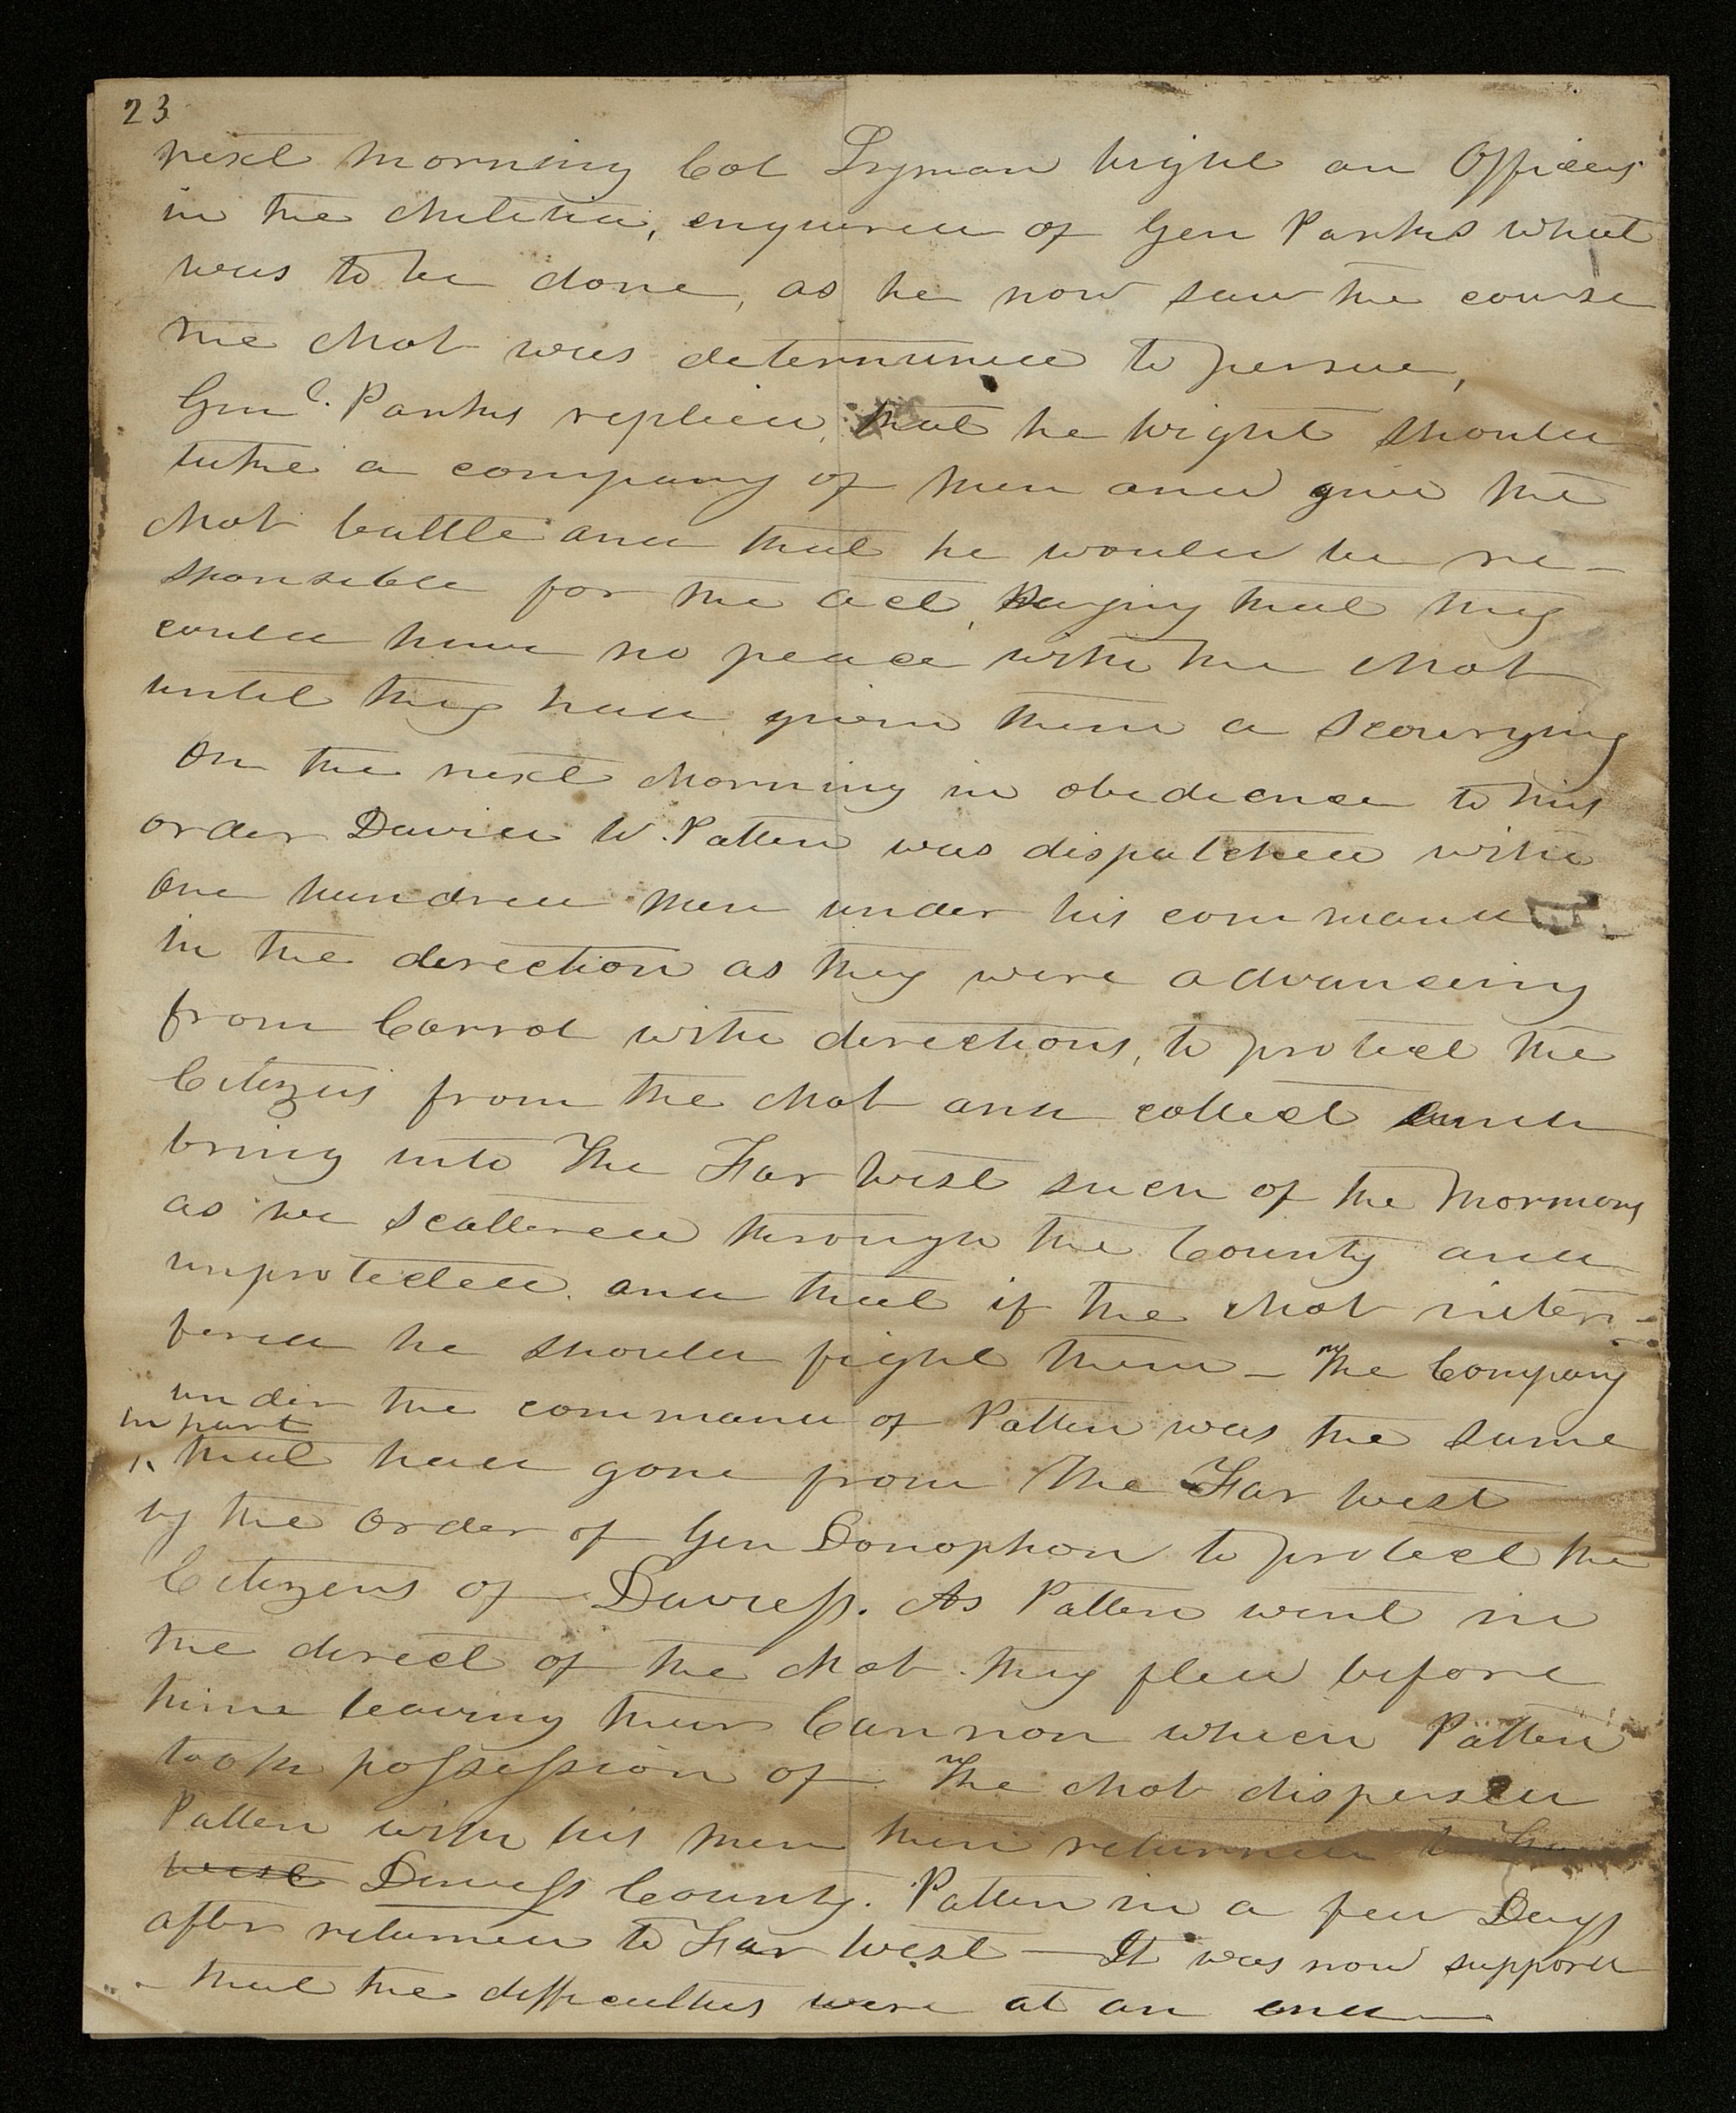 23
next morning Col Lyman Wight an Officer
in the Militia, enquired of Gen Parks what
was to be done, as he now saw the course
the Mob was determined to persue,
Genl. Parks replied, that he Wight should
take a company of men and give the
Mob battle and that he would be re-
sponsible for the act, saying that they
could have no peace with the Mob
until they had given them a scourging
On the next Morning in obedience to this
order David W. Patten was dispatched with
one hundred men under his command
in the direction as they were advancing
from Carrol with directions, to protect the
Citizens from the Mob and collect and
bring into The Far West such of the Mormons
as were scattered through the County and
unprotected. and that if the Mob inter-
fered he should fight them — The Company
under the command of Patten was the same
in part
^ that had gone from The Far West
by the order of Gen Donophon to protect the
Citizens of Daviess. As Patten went in
the direct of the Mob. they fled before
him leaving their Cannon which Patten
took possession of The Mob dispersed
Patten with his men then returned to Far
West Daviess County. Patten in a few Days
after returned to Far West — It was now suppored
that the difficulties were at an end